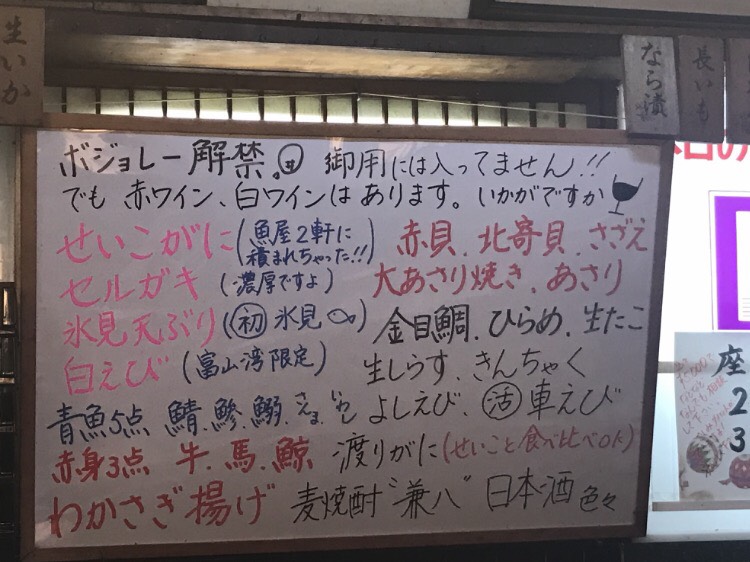 生いか
なら漬
長いも
ボジョレー解禁。御用には入ってません!!
でも 赤ワイン、白ワインはあります。いかがですか
せいこがに(魚屋2軒に積まれちゃった!!)
赤貝、北寄貝、さざえ
セルガキ(濃厚ですよ)
大あさり焼き、あさり
氷見天ぶり(初 氷見)
金目鯛、ひらめ、生たこ
白えび(富山湾限定)
生しらす、きんちゃく
青魚5点 鯖、鯵、鰯、さんま、いわし
よしえび、活 車えび
赤身3点 牛、馬、鯨
渡りがに(せいこと食べ比べOK)
わかさぎ揚げ
麦焼酎"兼八" 日本酒 色々
座
2
3